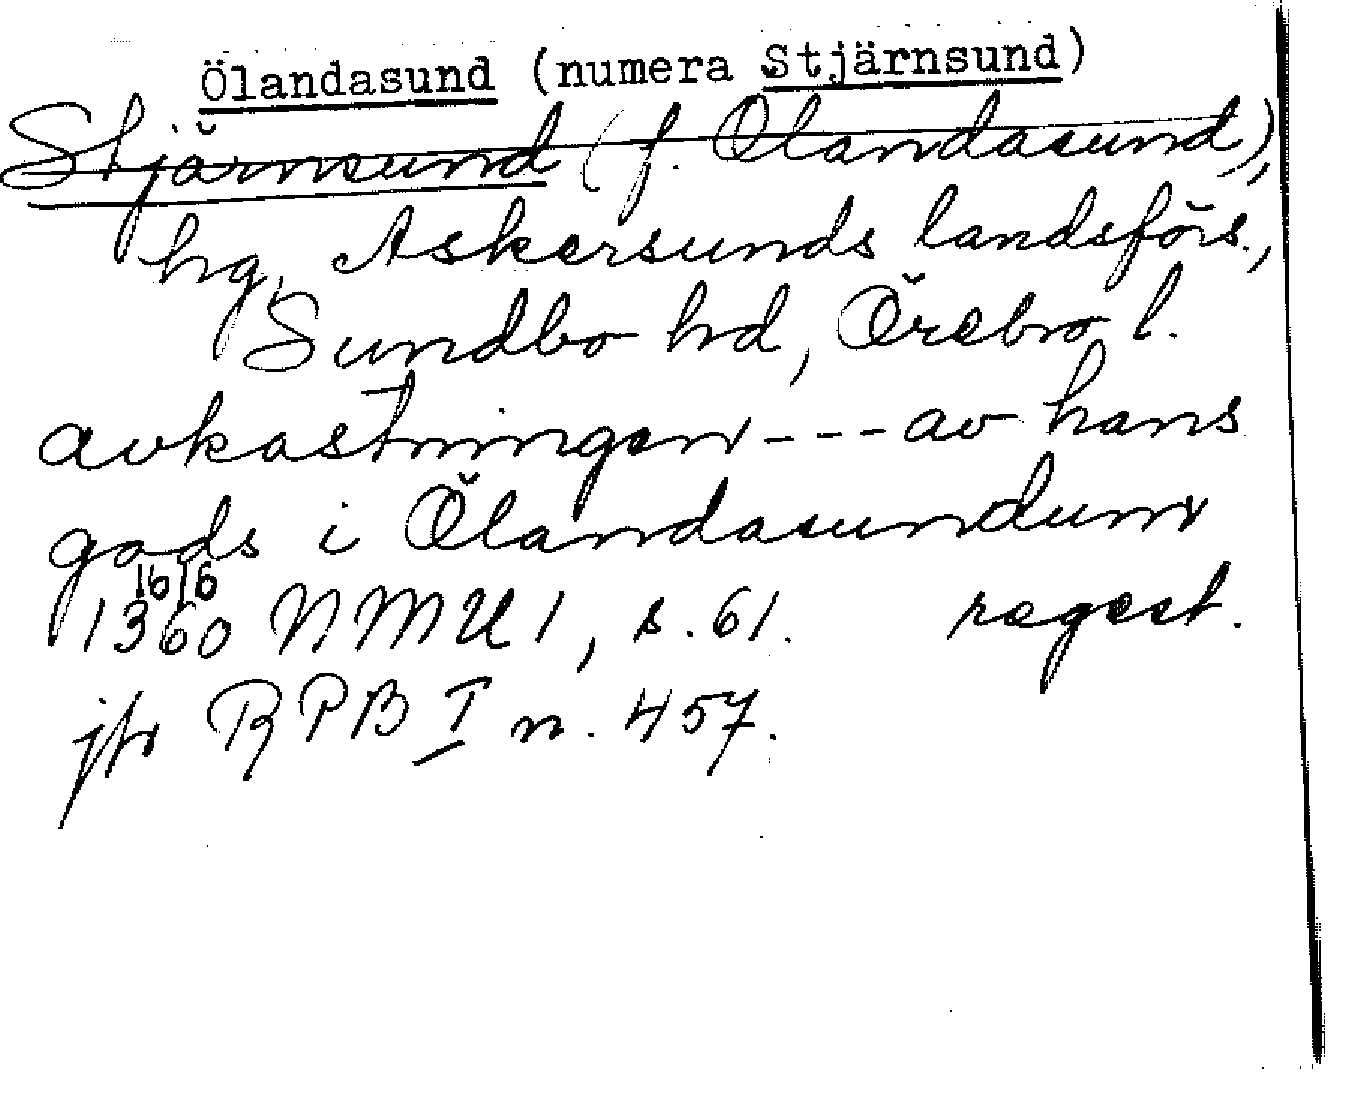 Ölandasund (numera Stjärnsund)
Stjärnsund (f. Ölandasund),
hg, Askersunds landsförs.,
Sundbo hd, Örebro l.
avkastningen --- av hans
gods i Ölandasundum
16/6
1360 NMU 1, s. 61. regest.
jfr RPB I n. 457.